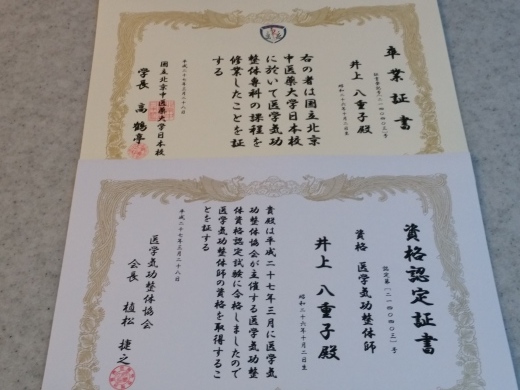 卒業証書
井上 八重子殿
昭和二十六年十月二日生
右の者は国立北京
中医薬大学日本校
に於いて医学気功
整体専科の課程を
修業したことを証
する
平成二十七年三月二十八日
国立北京中医薬大学日本校
学長 高鶴亭
資格認定証書
資格 医学気功整体師
井上 八重子殿
昭和二十六年十月二日生
貴殿は平成二十七年三月に医学気
功整体協会が主催する医学気功整
体資格認定試験に合格しましたので
医学気功整体師の資格を取得するこ
とを証する
平成二十七年三月二十八日
医学気功整体協会
会長 植松 捷之